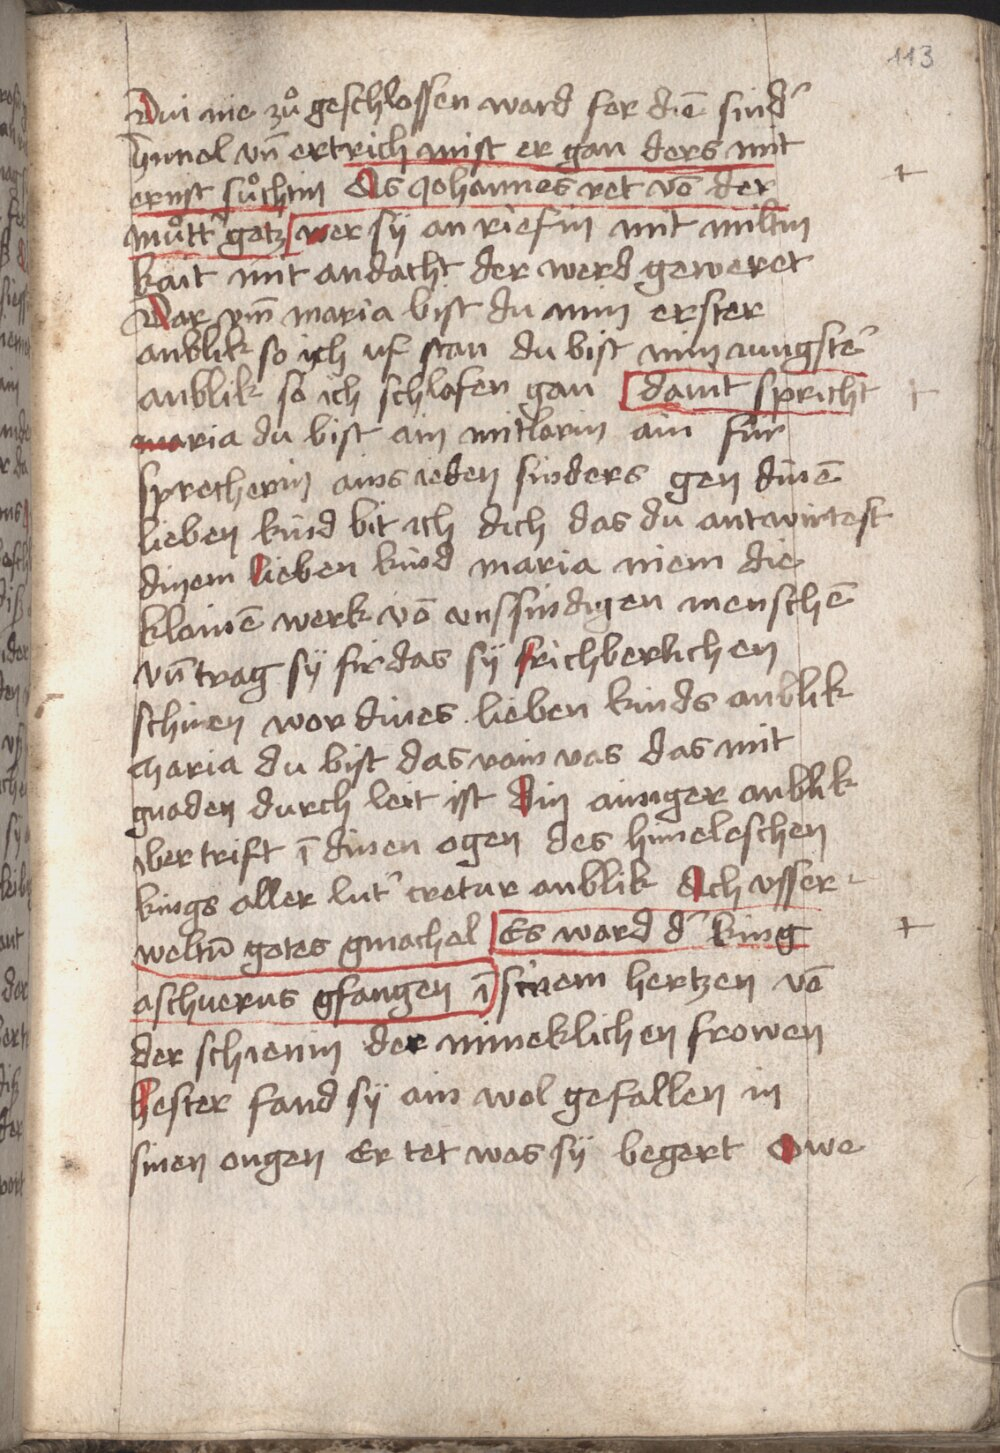 113
Dui nie zuͦ geschlossen ward fer diē sind'
himel vn̄ ertrich mist er gan ders mit
ernst suͦchtin Als Johannes ret vō der
muͦtt' gotz wer sÿ an riefin mit miltin
kait mit andacht der werd geweret
Dar vm̄ maria bist du min erster
anblik so ich uf stan du bist min iungste'
anblik so ich schlafen gan damt spricht
maria du bist ain mitlerin ain für
sprecherin ains ieden sinders gen dinē
lieben kind bit ich dich das du antwirtest
dinem lieben kind maria niem die
klainē werk vō uns sindigen menschē
vn̄ trag sÿ fir das sÿ frichberlichen
schinen wor dines lieben kinds anblik
maria du bist das rain vas das mit
gnaden durch leit ist Din ainiger anblik
iber trift ī dinen ogen des himeleschen
kings aller lut' cretur anblik Ach usser
weltū gotes gmachel Es ward d' king
aschuerus gfangen ī sinem hertzen vō
der schienin der mineklichen frowen
hester fand sÿ ain wol gefallen in
sinen ougen Er tet was sÿ begert Owe